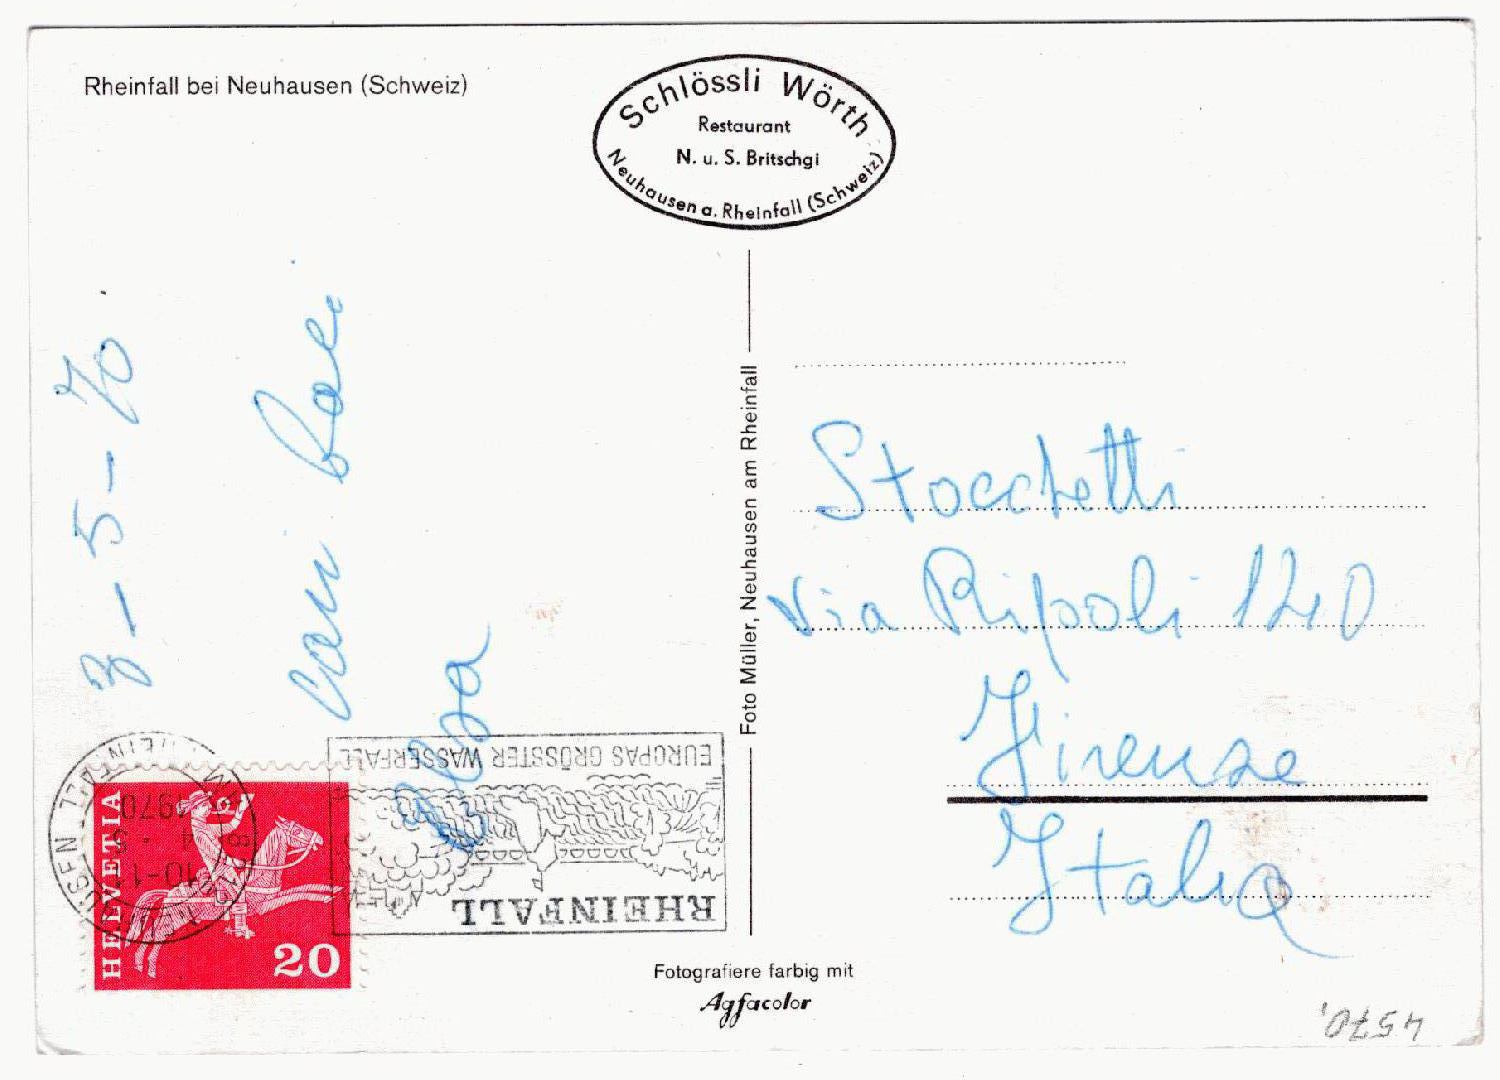 Rheinfall bei Neuhausen (Schweiz)
Schlössli Wörth
Restaurant
N. u. S. Britschgi
Neuhausen a. Rheinfall (Schweiz)
3-5-70
cari baci
Foto Müller, Neuhausen am Rheinfall
Stocchetti
via Ripoli 120
Firenze
Italia
RHEINFALL
EUROPAS GRÖSSTER WASSERFALL
1970
HELVETIA
20
Fotografiere farbig mit
Agfacolor